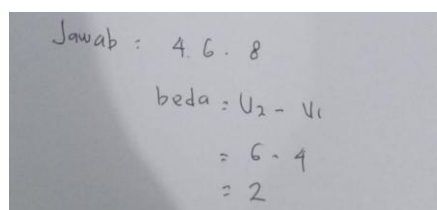 Jawab : 4. 6. 8
beda = U2 - U1
= 6 - 4
= 2